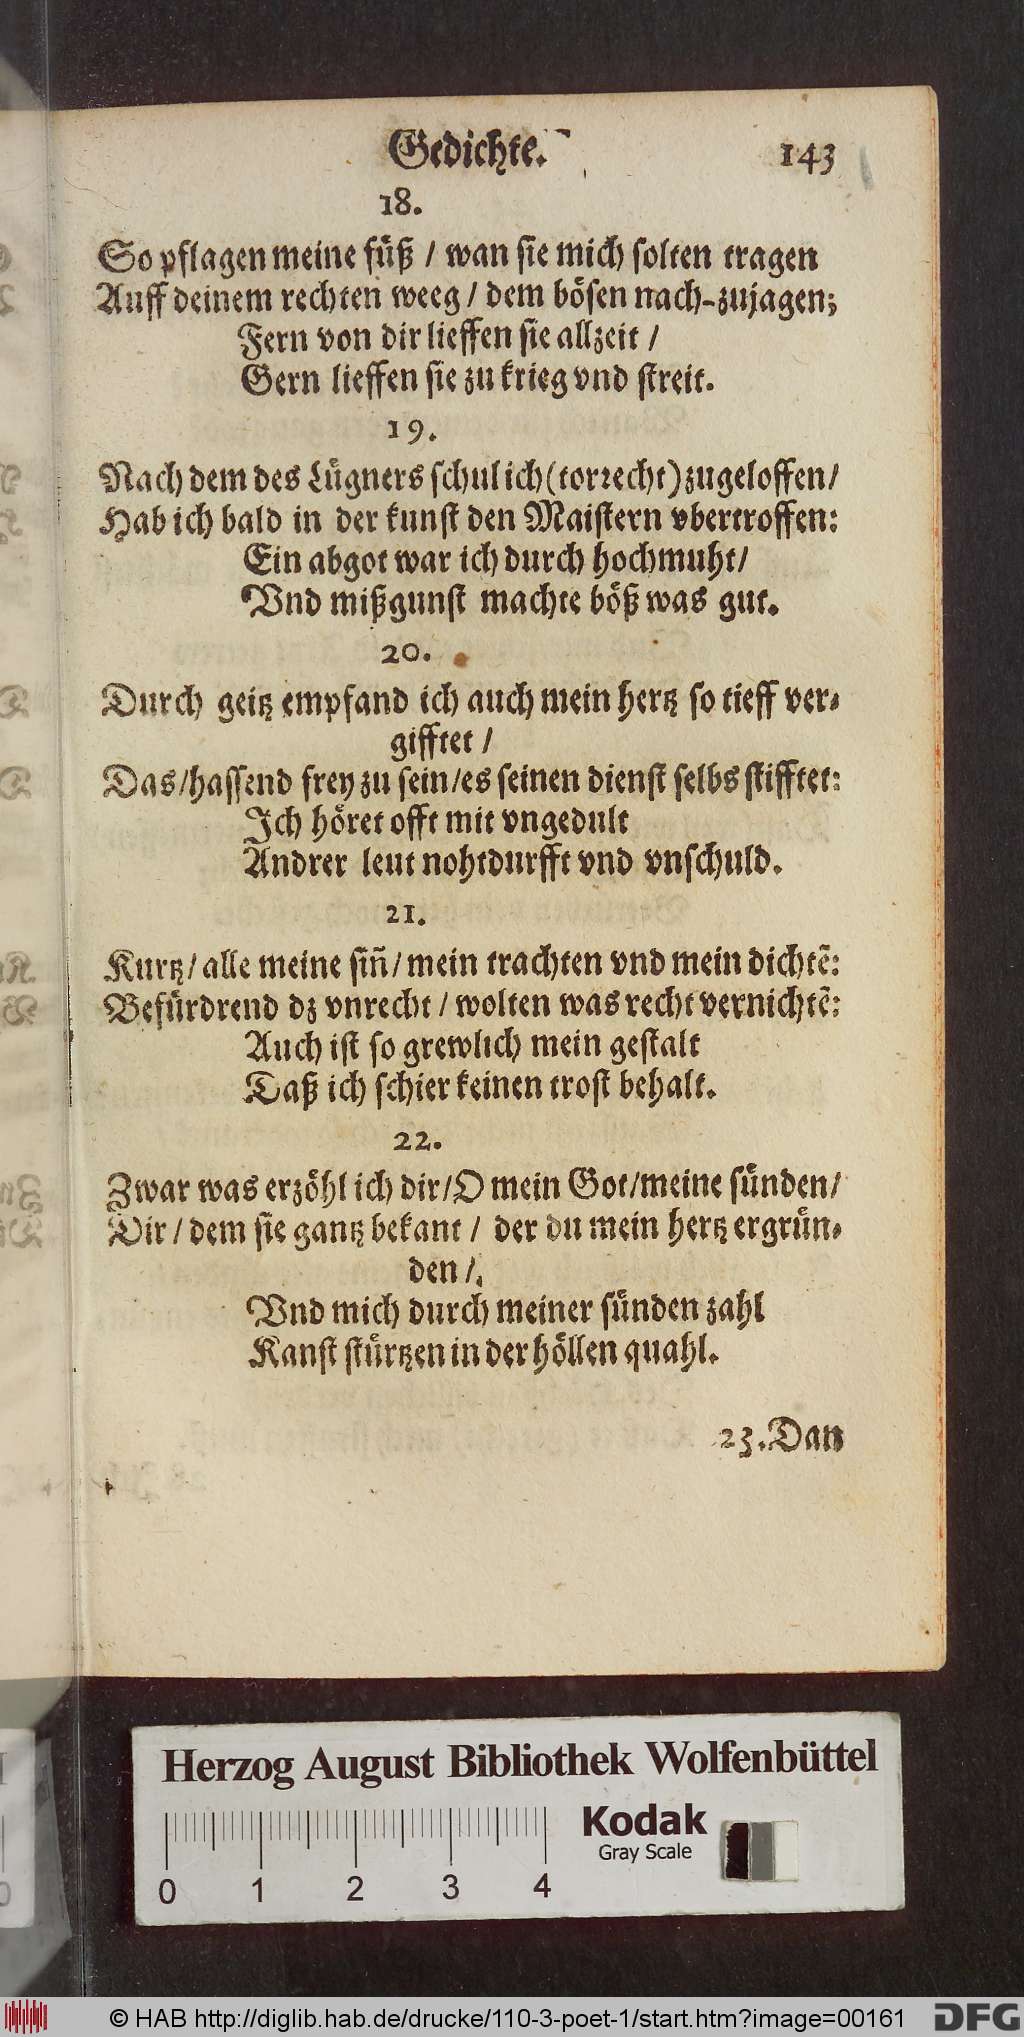 Gedichte. 143
18.
So pflagen meine füß / wan sie mich solten tragen
Auff deinem rechten weeg / dem bösen nach-zujagen;
Fern von dir lieffen sie allzeit /
Gern lieffen sie zu krieg vnd streit.
19.
Nach dem des Lügners schul ich (torrecht) zugeloffen /
Hab ich bald in der kunst den Maistern vbertroffen:
Ein abgot war ich durch hochmuht /
Vnd mißgunst machte böß was gut.
20.
Durch geitz empfand ich auch mein hertz so tieff ver-
gifftet /
Das / hassend frey zu sein / es seinen dienst selbs stifftet:
Ich höret offt mit vngedult
Andrer leut nohtdurfft vnd vnschuld.
21.
Kurtz / alle meine sin̄ / mein trachten vnd mein dichtē:
Befürdrend dz vnrecht / wolten was recht vernichtē:
Auch ist so grewlich mein gestalt
Daß ich schier keinen trost behalt.
22.
Zwar was erzöhl ich dir / O mein Got / meine sünden /
Dir / dem sie gantz bekant / der du mein hertz ergrün-
den /.
Vnd mich durch meiner sünden zahl
Kanst stürtzen in der höllen quahl.
23. Dan
Herzog August Bibliothek Wolfenbüttel
Kodak
Gray Scale
0 1 2 3 4
© HAB http://diglib.hab.de/drucke/110-3-poet-1/start.htm?image=00161
DFG